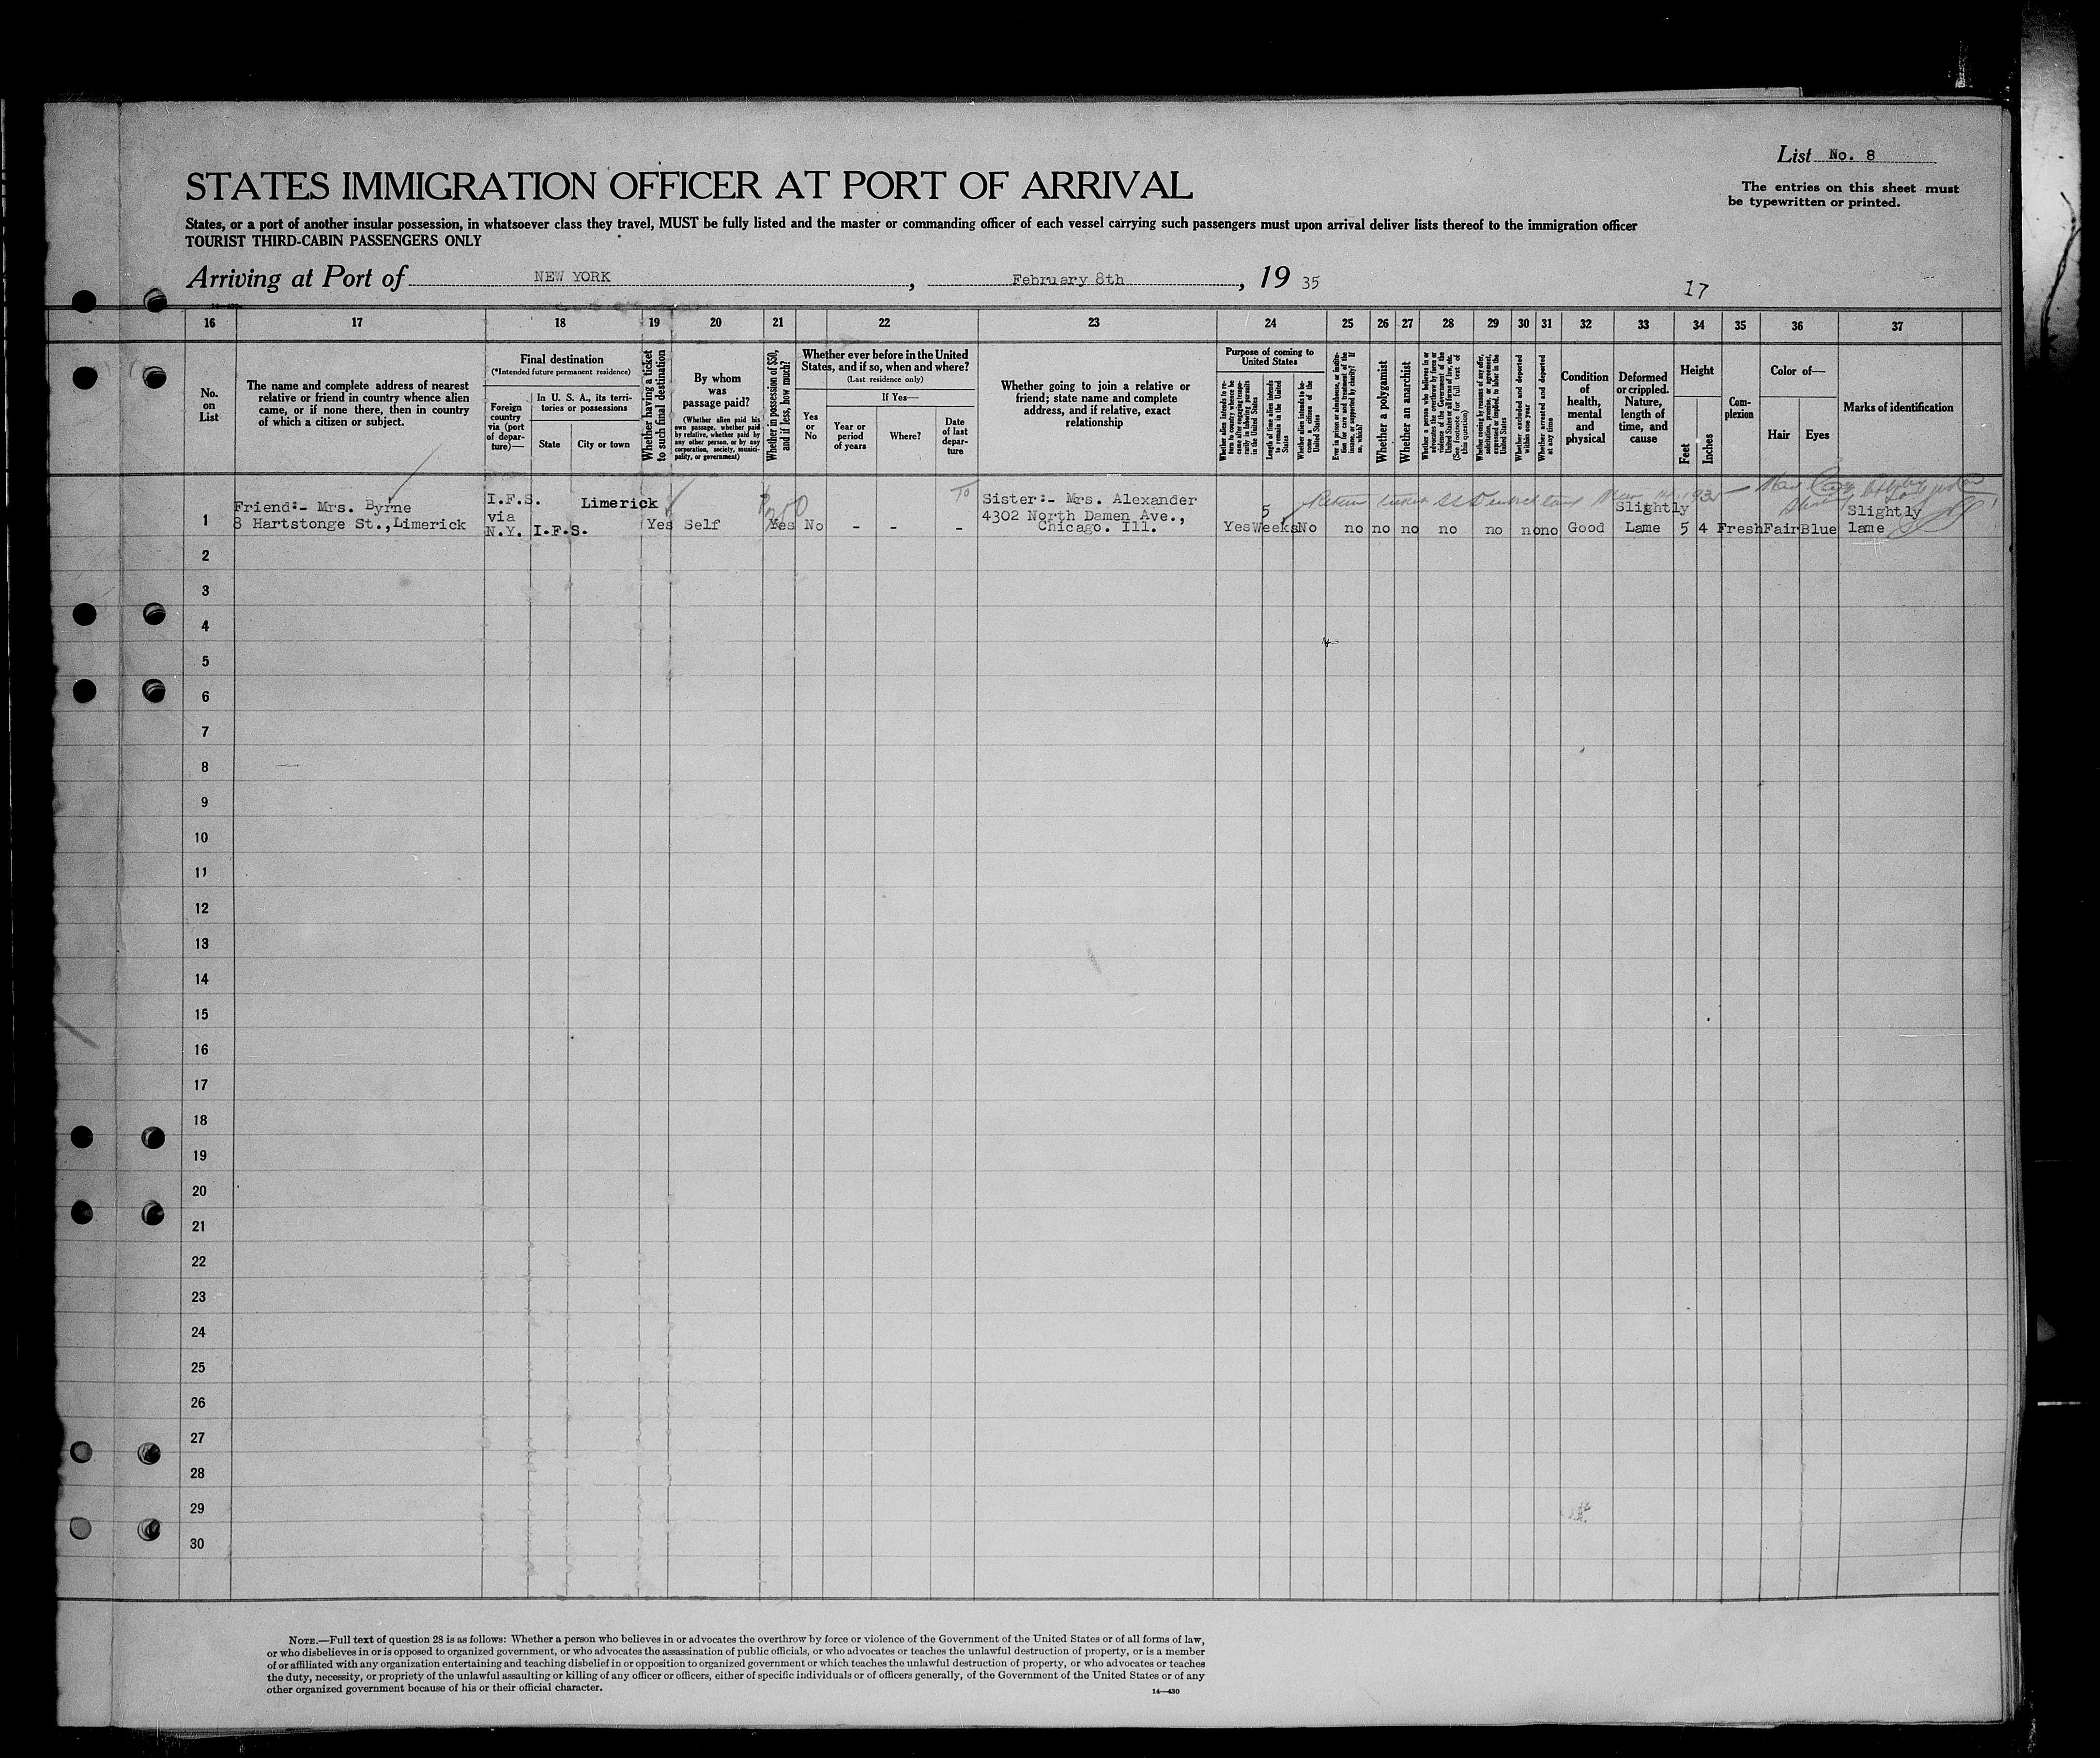 List No. 8
STATES IMMIGRATION OFFICER AT PORT OF ARRIVAL
The entries on this sheet must
be typewritten or printed.
States, or a port of another insular possession, in whatsoever class they travel, MUST be fully listed and the master or commanding officer of each vessel carrying such passengers must upon arrival deliver lists thereof to the immigration officer
TOURIST THIRD-CABIN PASSENGERS ONLY
Arriving at Port of NEW YORK, February 8th, 19 35
17
16 17 18 19 20 21 22 23 24 25 26 27 28 29 30 31 32 33 34 35 36 37
No.
on
List
The name and complete address of nearest
relative or friend in country whence alien
came, or if none there, then in country
of which a citizen or subject.
Final destination
(*Intended future permanent residence)
Foreign
country
via (port
of depar-
ture)—
In U. S. A., its terri-
tories or possessions
State
City or town
Whether having a ticket
to such final destination
By whom
was
passage paid?
(Whether alien paid his
own passage, whether paid
by relative, whether paid by
any other person, or by any
corporation, society, munici-
pality, or government)
Whether in possession of $50,
and if less, how much?
Whether ever before in the United
States, and if so, when and where?
(Last residence only)
Yes
or
No
If Yes—
Year or
period
of years
Where?
Date
of last
depar-
ture
Whether going to join a relative or
friend; state name and complete
address, and if relative, exact
relationship
Purpose of coming to
United States
Whether alien intends to re-
turn to country whence he
came after engaging tempo-
rarily in laboring pursuits
in the United States
Length of time alien intends
to remain in the United
States
Whether alien intends to be-
come a citizen of the
United States
Ever in prison or almshouse, or institu-
tion for care and treatment of the
insane, or supported by charity? If
so, which?
Whether a polygamist
Whether an anarchist
Whether a person who believes in or
advocates the overthrow by force or
violence of the Government of the
United States or all forms of law, etc.
(See footnote for full text of
this question)
Whether coming by reason of any offer,
solicitation, promise, or agreement,
expressed or implied, to labor in the
United States
Whether excluded and deported
within one year
Whether arrested and deported
at any time
Condition
of
health,
mental
and
physical
Deformed
or crippled.
Nature,
length of
time, and
cause
Height
Feet
Inches
Com-
plexion
Color of—
Hair
Eyes
Marks of identification
1
Friend:- Mrs. Byrne
8 Hartstonge St.,Limerick
I.F.S.
via
N.Y.
Limerick
I.F.S.
Yes
Self
Yes
No
-
-
-
To
Sister:- Mrs. Alexander
4302 North Damen Ave.,
Chicago. Ill.
Yes
5
Weeks
No
no no no no no no no
Good
Slightly
Lame
5 4
Fresh
Fair
Blue
Slightly
lame
2
3
4
5
6
7
8
9
10
11
12
13
14
15
16
17
18
19
20
21
22
23
24
25
26
27
28
29
30
NOTE.—Full text of question 28 is as follows: Whether a person who believes in or advocates the overthrow by force or violence of the Government of the United States or of all forms of law,
or who disbelieves in or is opposed to organized government, or who advocates the assassination of public officials, or who advocates or teaches the unlawful destruction of property, or is a member
of or affiliated with any organization entertaining and teaching disbelief in or opposition to organized government or which teaches the unlawful destruction of property, or who advocates or teaches
the duty, necessity, or propriety of the unlawful assaulting or killing of any officer or officers, either of specific individuals or of officers generally, of the Government of the United States or of any
other organized government because of his or their official character.
14—430